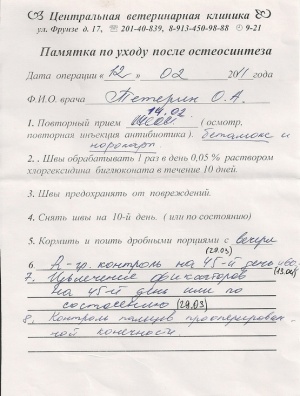 Центральная ветеринарная клиника
ул. Фрунзе д.17, ☎ 201-40-839, 8-913-450-98-88 9-21
Памятка по уходу после остеосинтеза
Дата операции « 12 » 02 2011 года
Ф.И.О. врача Тетерин О.А.
14.02
1. Повторный прием ( осмотр,
повторная инъекция антибиотика ). бетамокс и
2. . Швы обрабатывать 1 раз в день 0,05 % раствором
хлоргексидина биглюконата в течение 10 дней.
3. Швы предохранять от повреждений.
4. Снять швы на 10-й день. ( или по состоянию)
5. Кормить и поить дробными порциями с вечера
(29.03)
6. контроль на 45-й день
7. Извлечение фиксаторов
на 45-й день или по
состоянию (29.03)
8. Контроль пальцев прооперирован-
ной конечности.